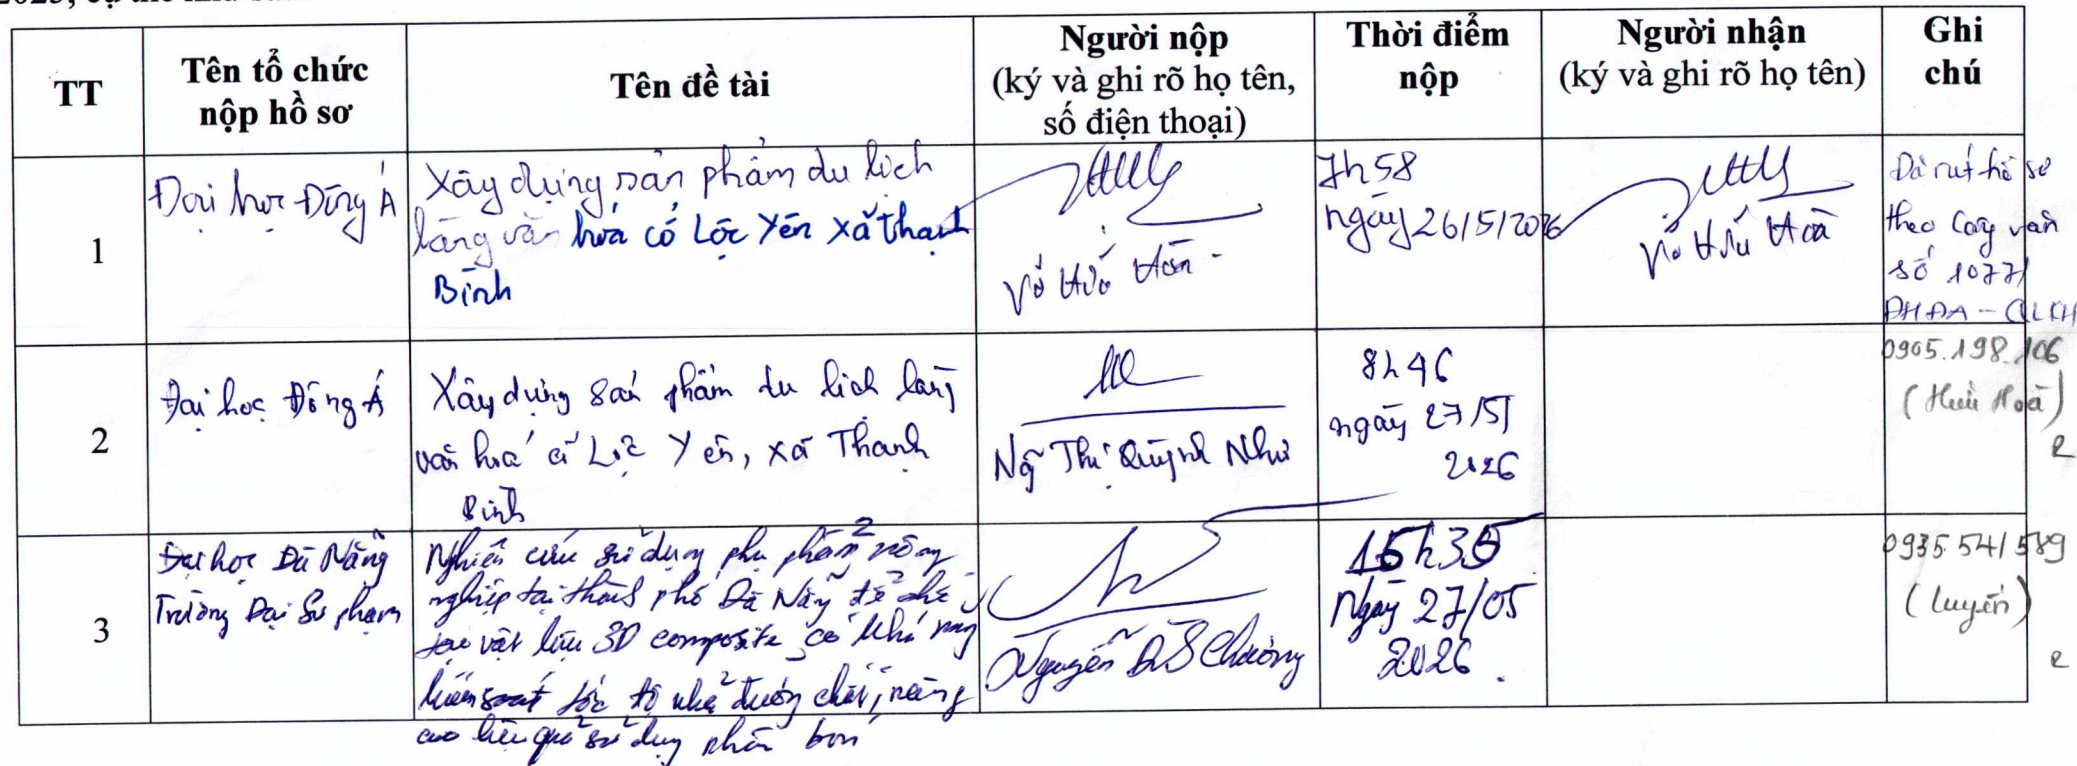 TT
Tên tổ chức
nộp hồ sơ
Tên đề tài
Người nộp
(ký và ghi rõ họ tên,
số điện thoại)
Thời điểm
nộp
Người nhận
(ký và ghi rõ họ tên)
Ghi
chú
1
Đại học Đông Á
Xây dựng sản phẩm du lịch
làng văn hóa cổ Lộc Yên xã Thạnh
Bình
7h58
ngày 26/5/2026
Võ Hữu Hòa
Đã rút hồ sơ
theo Công văn
số 1077/
ĐHĐA-QLKH
2
Đại học Đông Á
Xây dựng sản phẩm du lịch làng
văn hoá cổ Lộc Yên, xã Thạnh
Bình
Thị Quỳnh Như
8h46
ngày 27/5/
2026
0905.198.106
(Hữu Hoà)
3
Đại học Đà Nẵng
Trường Đại Sư phạm
Nghiên cứu sử dụng phụ phẩm nông
nghiệp tại thành phố Đà Nẵng để chế
tạo vật liệu 3D composite có khả năng
kiểm soát tốc độ nhả dưỡng chất, nâng
cao hiệu quả sử dụng phân bón
Nguyễn Chương
15h35
Ngày 27/05
2026.
0935.541589
(Luyến)